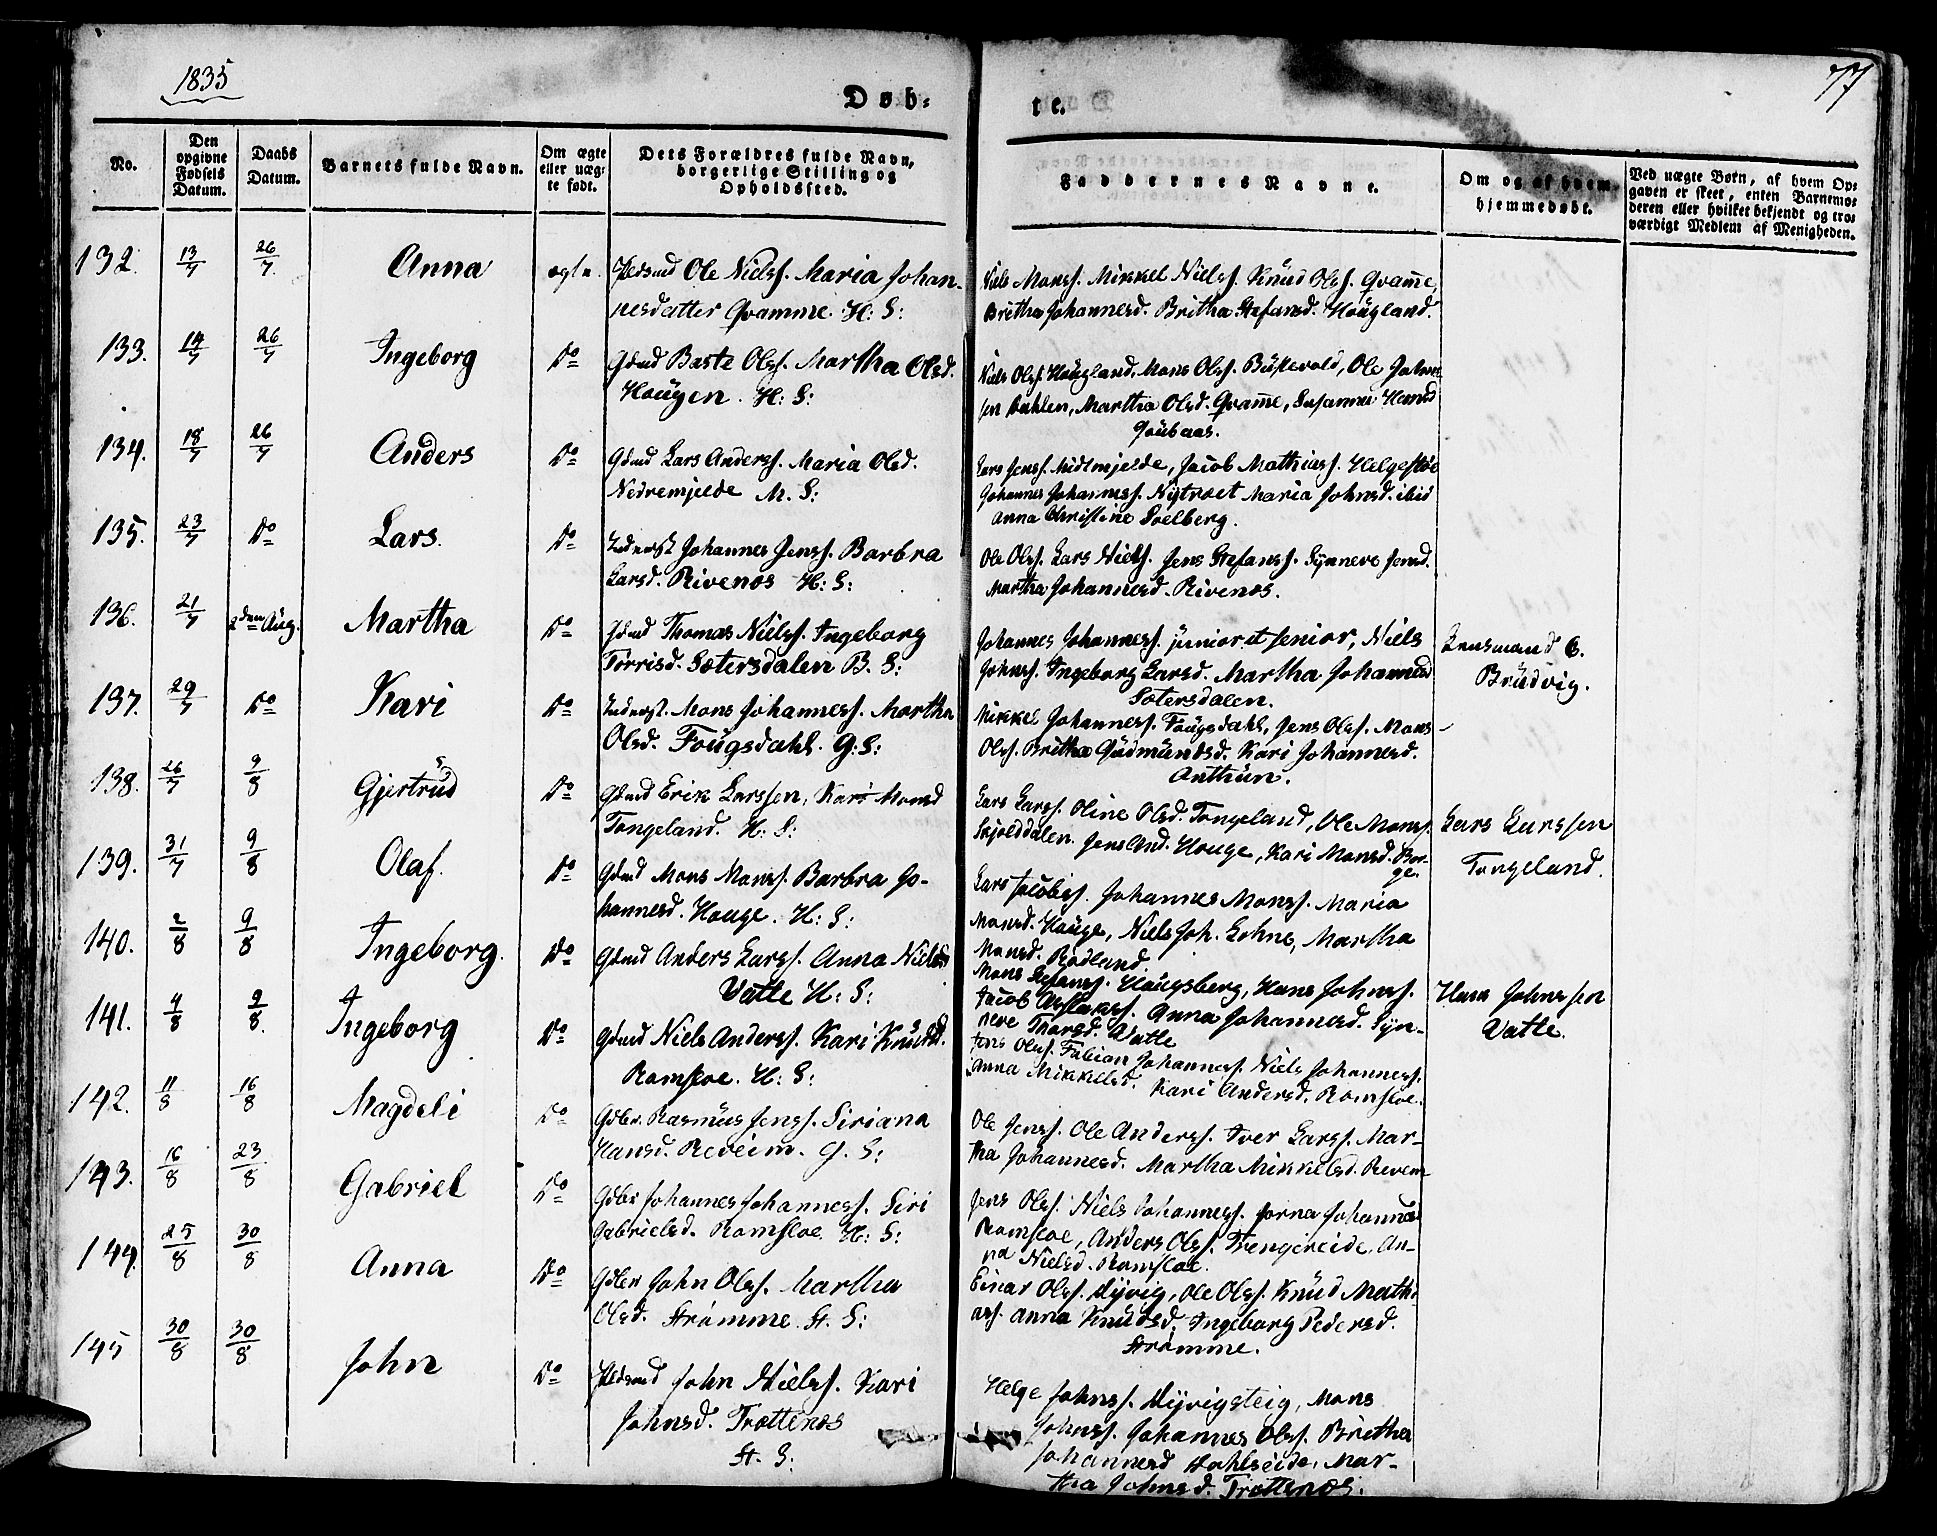 1835
77
Døb-
te.
No.
Den opgivne Fødsels Datum.
Daabs Datum.
Barnets fulde Navn.
Om ægte eller uægte født.
Dets Forældres fulde Navn, borgerlige Stilling og Opholdssted.
Faddernes Navne.
Om og af hvem hjemmedøbt.
Ved uægte Børn, af hvem Opgaven er skeet, enten Barnemoderen eller hvilket bekjendt og troværdigt Medlem af Menigheden.
132. 13/7 26/7. Anna ægte. Pldsmd Ole Nielss. Maria Johan-
nesdatter Qvamme. H: S:
Niels Monss. Mikkel Nielss. Knud Olss. Qvamme,
Britha Johannesd. Britha Stefansd. Hougland.
133. 14/7 26/7 Ingeborg Do Gdmd Baste Olss. Martha Olsd.
Hougen. H: S:
Niels Olss. Hougland, Mons Olss. Ole
Martha Olsd. Qvamme,
134. 18/7 26/7 Anders Do Gdmd Lars Anderss. Maria Olsd.
Nedremjelde M. S:
Lars Jenss. Midtmjelde, Jacob Mathiass. Helgestøe
Johannes Johanness. Nytræet Maria Johnsd. ibid
Anna Christine Soelberg.
135. 23/7 Do Lars. Do Inderst Johannes Jenss. Barbra
Larsd. Rivenæs H: S:
Ole Olss. Lars Nielss. Jens Stefanss. Synneve Jensd.
Martha Johannesd. Rivenæs.
136. 21/7 2den Aug. Martha Do Gdmd Thomas Nielss. Ingeborg
Torrisd. Sætersdalen B. S:
Johannes Johanness. junior et senior, Niels
Johnss. Ingeborg Larsd. Martha Johannesd
Sætersdalen.
Lensmand
Brudvig.
137. 29/7 Do Kari Do Inderst. Mons Johanness. Martha
Olsd. Fougsdahl. G: S:
Mikkel Johanness. Fougsdahl, Jens Olss. Mons
Olss. Britha Gudmundsd. Kari Johannesd.
Anthun.
138. 26/7 9/8 Gjertrud Do Gdmd Erik Larssen, Kari Monsd
Tongeland. H: S:
Lars Larss. Oline Olsd. Tongeland, Ole Monss.
Skjolddalen. Jens And. Houge, Kari Monsd. Bor-
ge.
Lars Larssen
Tongeland.
139. 31/7 9/8 Olaf. Do Gdmd Mons Monss. Barbra Jo-
hannesd. Houge. H: S:
Lars Jacobss. Johannes Monss. Maria
Monsd. Houge, Niels Joh. Lohne, Martha
Monsd. Rødland.
140. 2/8 9/8 Ingeborg. Do Gdmd Anders Larss. Anna Nielsd
Vatle H: S:
Mons Stefanss. Hougsberg, Hans Johnss.
Jacob Anna Johannesd. Syn-
neve Thorsd. Vatle
Hans Johnssen
Vatle.
141. 4/8 9/8. Ingeborg Do Gdmd Niels Anderss. Kari Knudsd.
Romsloe. H: S:
Jens Olss. Fabian Johanness. Niels Johanness.
Anna Mikkelsd. Kari Andersd. Romsloe.
142. 11/8 16/8 Magdeli Do Gdbr. Rasmus Jenss. Siriana
Hansd. Reveim. G. S:
Ole Jenss. Ole Anderss. Iver Larss. Mar-
tha Johannesd. Martha Mikkelsd. Reveim
143. 16/8 23/8 Gabriel Do Gdbr Johannes Johanness. Siri
Gabrielsd. Romsloe. H: S:
Jens Olss. Niels Johanness. Johannesd
Romsloe, Anders Olss. Trengereide. An-
na Nielsd. Romsloe.
144. 25/8 30/8 Anna Do Gdbr John Olss. Martha
Olsd. Strømme. St. S:
Einar Olss. Myvig, Ole Olss. Knud Mathi-
ass. Anna Knudsd. Ingeborg Pedersd.
Strømme.
145 30/8 30/8 John Do Pldsmd John Nielss. Kari
Johnsd. Trættenæs
St. S:
Helge Johnss. Myvigsteig, Mons
Johnss. Johannes Olss. Britha
Johannesd Hahlseide, Mar-
tha Johnsd. Trættenæs.